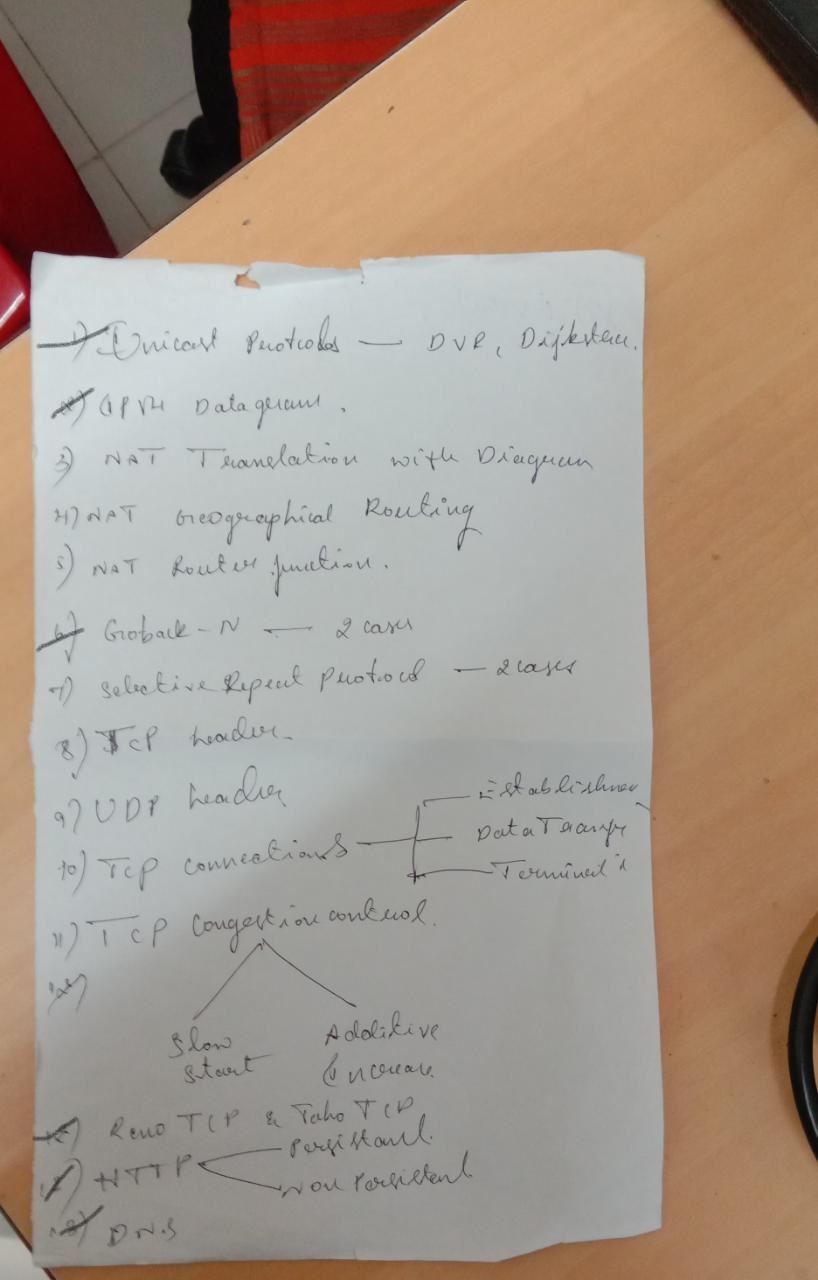 1) Unicast Protocols — DVR, Dijkstra.
2) IPV4 Datagram.
3) NAT Translation with Diagram
4) NAT Geographical Routing
5) NAT Router function.
6) Goback-N — 2 cases
7) Selective Repeat Protocol — 2 cases
8) TCP header.
9) UDP header
10) TCP connections — Establishmen
Data Transfe
Terminat'n
11) TCP Congestion control.
Slow Start
Additive Increase
Reno TCP & Taho TCP
HTTP Persistant.
Non Persistent
DNS